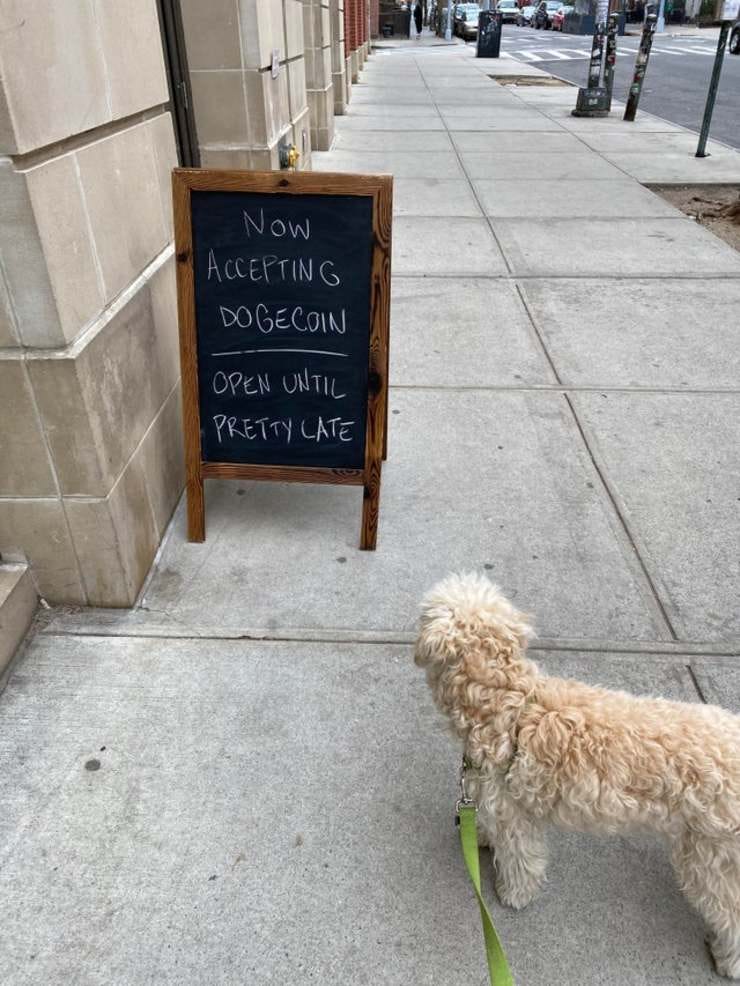 NOW
ACCEPTING
DOGECOIN
OPEN UNTIL
PRETTY LATE